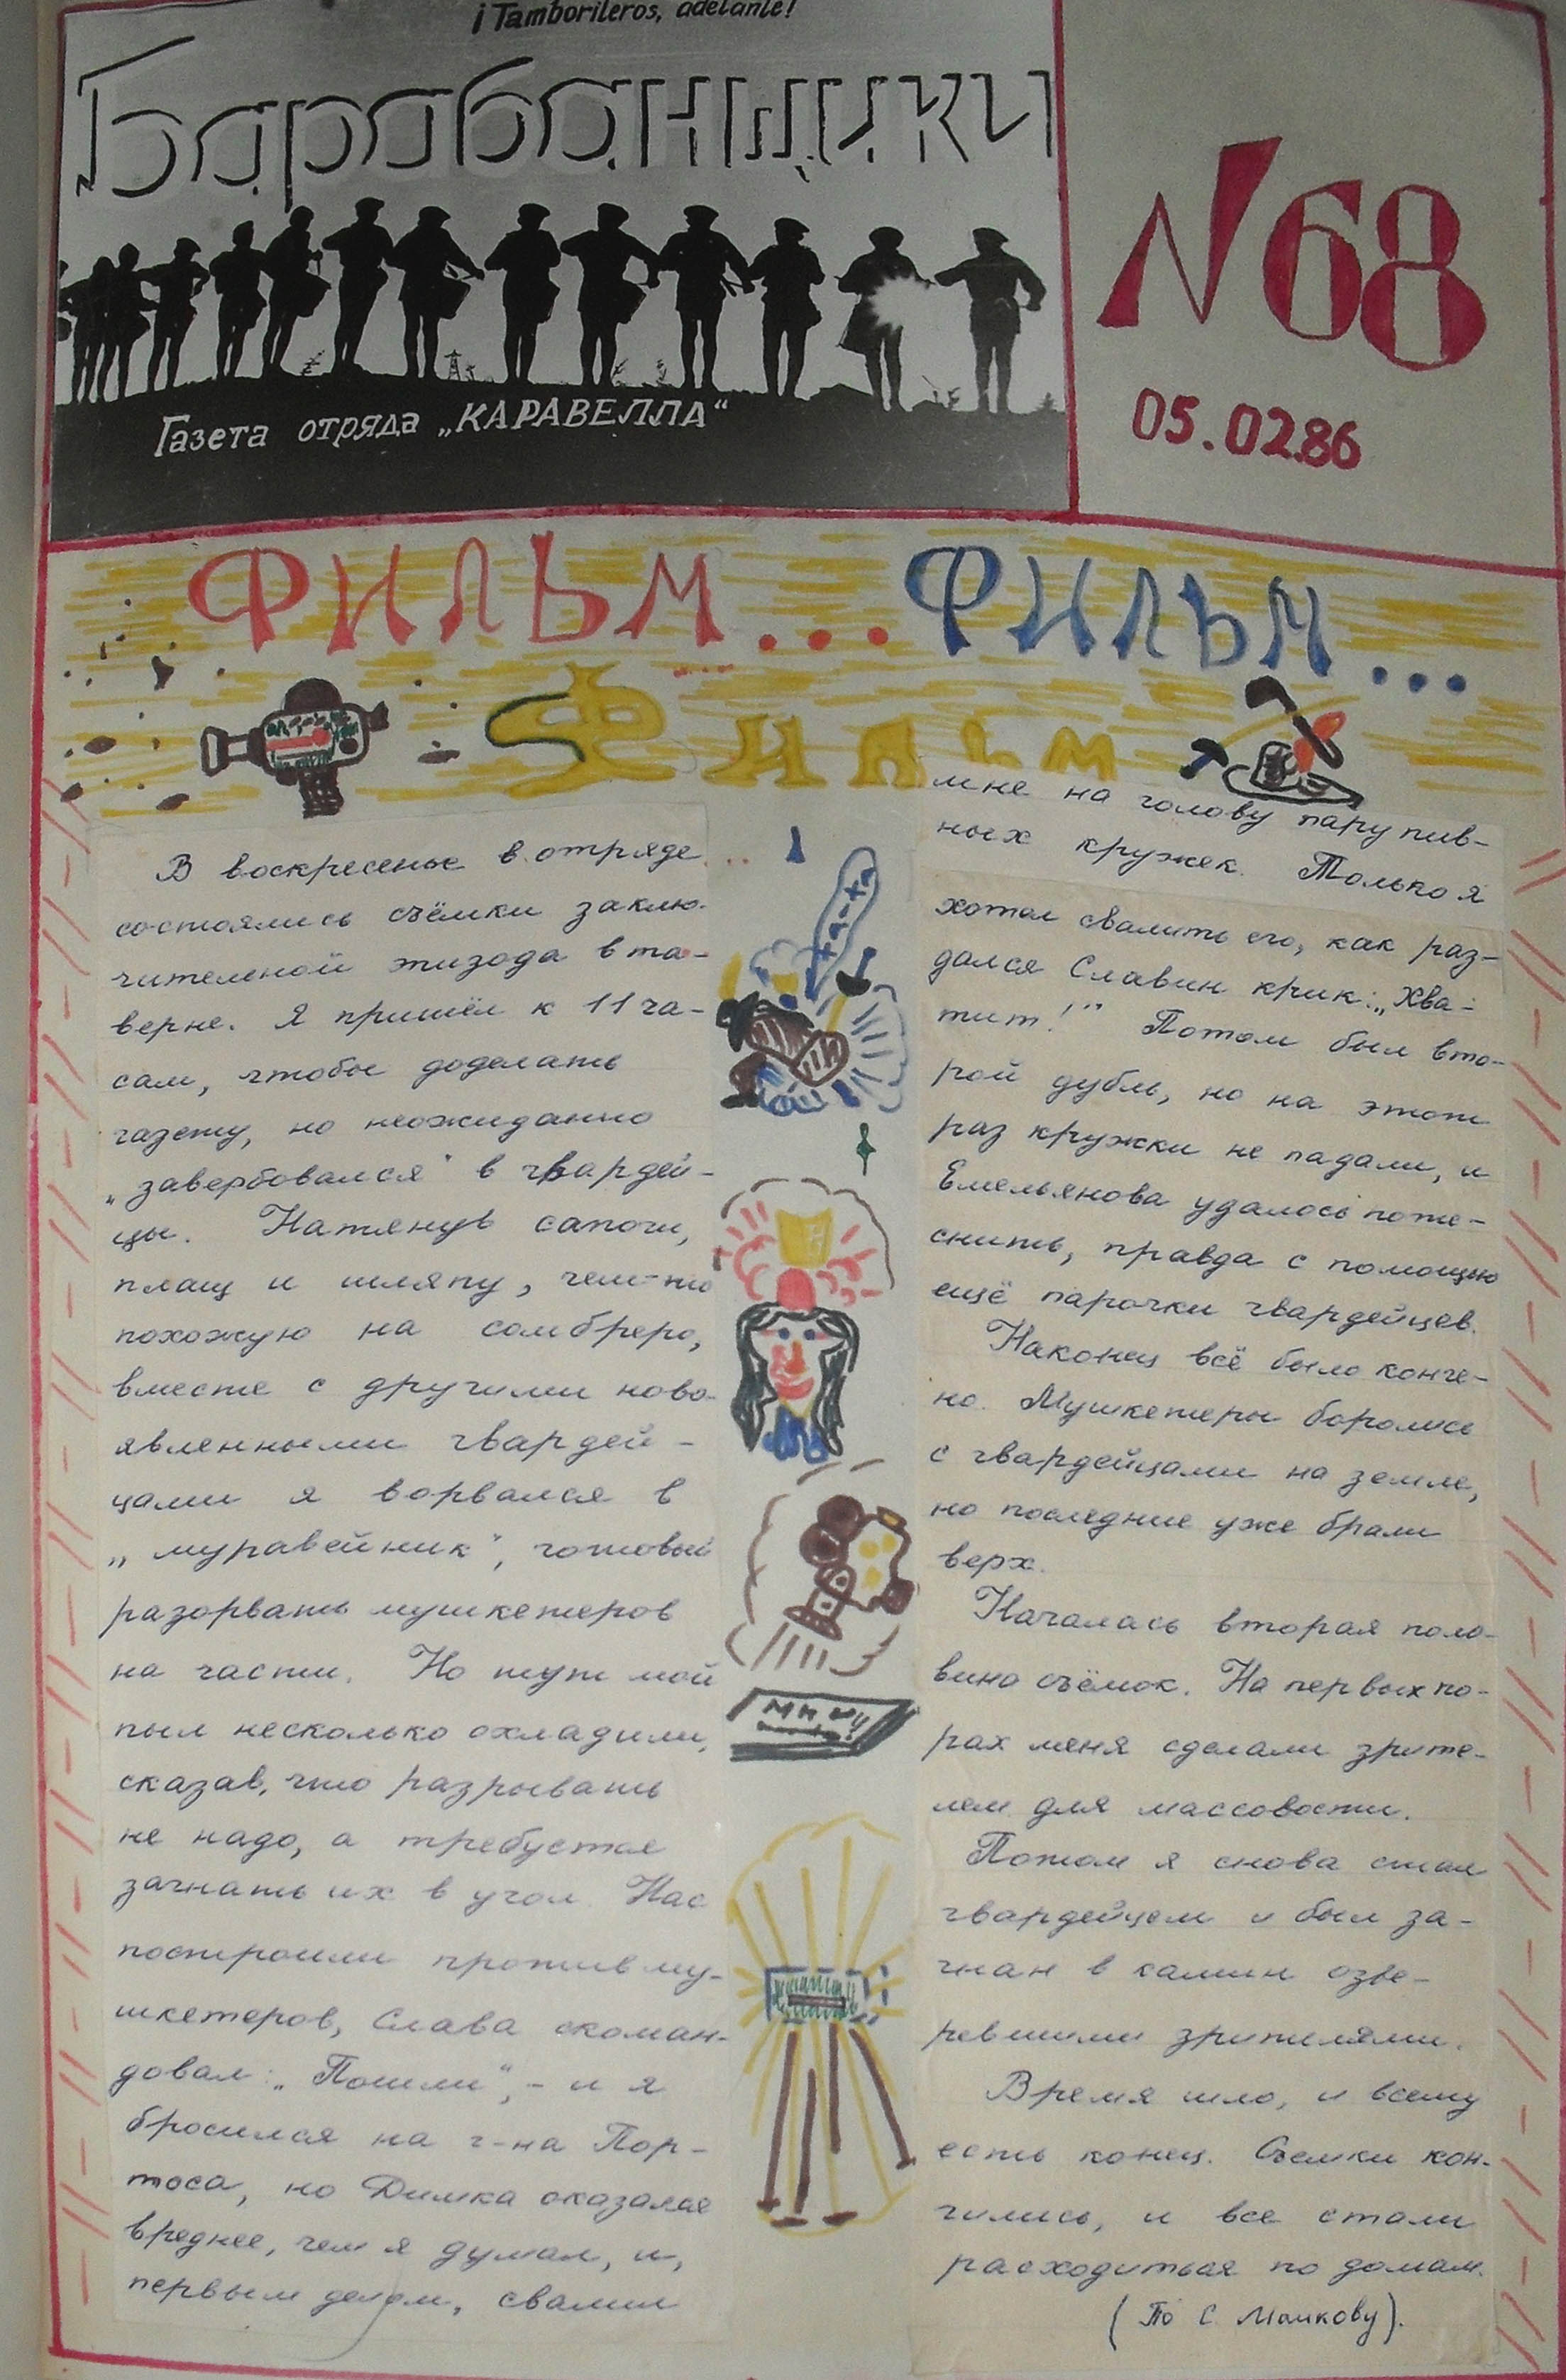 ¡Tamborileros, adelante!
Барабанщики
Газета отряда „КАРАВЕЛЛА"
N68
05.02.86
ФИЛЬМ... ФИЛЬМ...
Фильм
В воскресенье в отряде
состоялись съёмки заклю-
чительной эпизода в та-
верне. Я пришёл к 11 ча-
сам, чтобы доделать
газету, но неожиданно
„завербовался" в гвардей-
цы. Натянув сапоги,
плащ и шляпу, чем-то
похожую на сомбреро,
вместе с другими ново-
явленными гвардей-
цами я ворвался в
„муравейник", готовый
разорвать мушкетеров
на части. Но тут мой
пыл несколько охладили,
сказав, что разрывать
не надо, а требуется
загнать их в угол. Нас
построили против му-
шкетеров, Слава скоман-
довал: „Пошли", - и я
бросился на г-на Пор-
тоса, но Димка оказался
вреднее, чем я думал, и,
первым делом, свалил
мне на голову пару пив-
ных кружек. Только я
хотел свалить его, как раз-
дался Славин крик: „Хва-
тит!" Потом был вто-
рой дубль, но на этот
раз кружки не падали, и
Емельянова удалось поте-
снить, правда с помощью
ещё парочки гвардейцев.
Наконец всё было конче-
но. Мушкетеры боролись
с гвардейцами на земле,
но последние уже брали
верх.
Началась вторая поло-
вина съёмок. На первых по-
рах меня сделали зрите-
лем для массовости.
Потом я снова стал
гвардейцем и был за-
гнан в камин озве-
ревшими зрителями.
Время шло, и всему
есть конец. Съемки кон-
чились, и все стали
расходиться по домам.
(По С. Малкову).